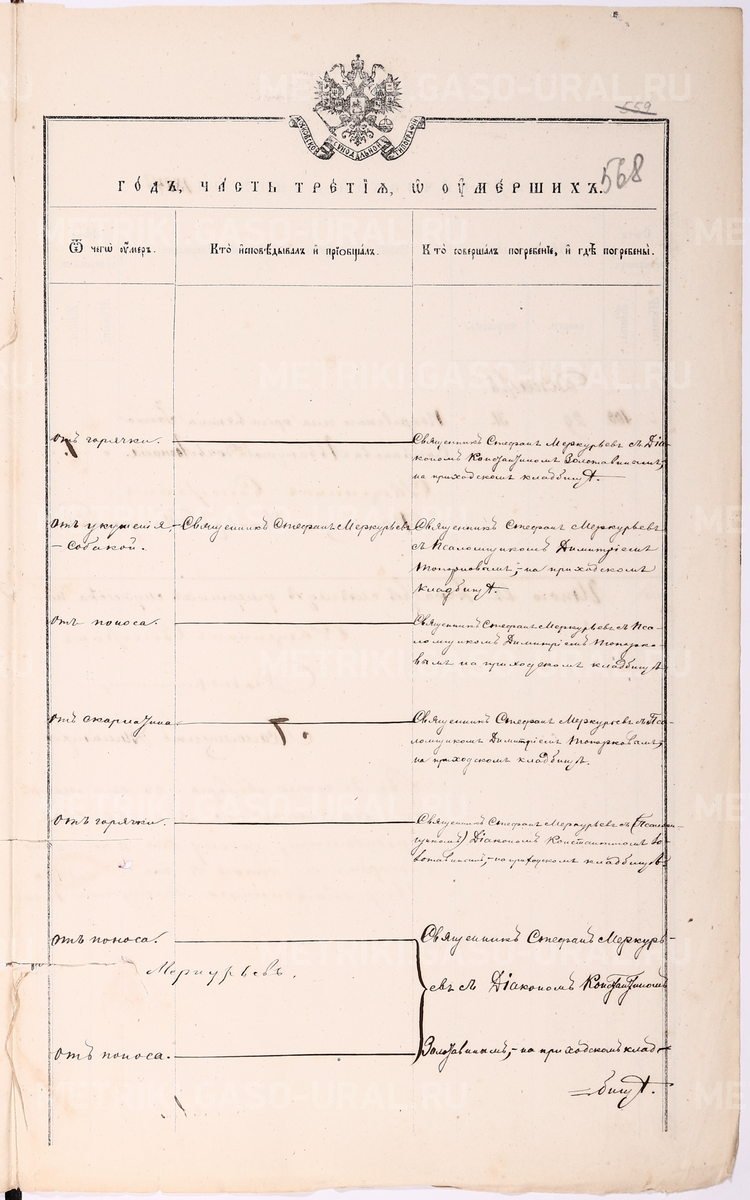 559
МОСКОВСКОЙ СѴНОДАЛЬНОЙ ТИПОГРАФІИ
568
ГОДЪ, ЧАСТЬ ТРЕТІѦ, Ѡ ОУМЕРШИХЪ.
Ѿ чегѡ оумеръ.
Кто исповѣдывалъ и прїобщалъ.
Кто совершалъ погребенїе, и гдѣ погребены.
Отъ горячки.
Священникъ Стефанъ Меркурьевъ съ Діа-
кономъ Константиномъ Золотавинымъ,
на приходскомъ кладбищѣ.
Отъ укушенія
собакой.
Священникъ Стефанъ Меркурьевъ
Священникъ Стефанъ Меркурьевъ
съ Псаломщикомъ Димитріемъ
Топорковымъ, – на приходскомъ
кладбищѣ.
Отъ поноса.
Священникъ Стефанъ Меркурьевъ съ Пса-
ломщикомъ Димитріемъ Топорко-
вымъ на приходскомъ кладбищѣ
Отъ скарлатина
Священникъ Стефанъ Меркурьевъ съ Пса-
ломщикомъ Димитріемъ Топорковымъ,
на приходскомъ кладбищѣ.
Отъ горячки.
Священникъ Стефанъ Меркурьевъ съ
Діакономъ Константиномъ Зо-
лотавинымъ, – на приходскомъ кладбищѣ
Отъ поноса.
Священникъ Стефанъ Меркурь-
Меркурьевъ.
евъ съ Діакономъ Константиномъ
Отъ поноса.
Золотавинымъ, – на приходскомъ клад-
бищѣ.
METRIKI.GASO-URAL.RU